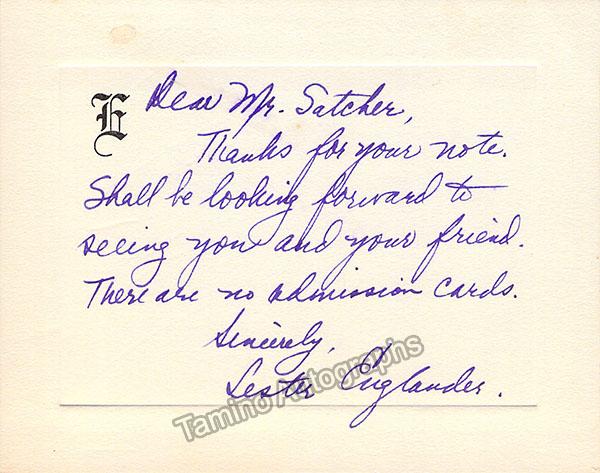 E
Dear Mr. Satcher,
Thanks for your note.
Shall be looking forward to
seeing you and your friend.
There are no admission cards.
Sincerely,
Lester Englander.
Tamino Autographs